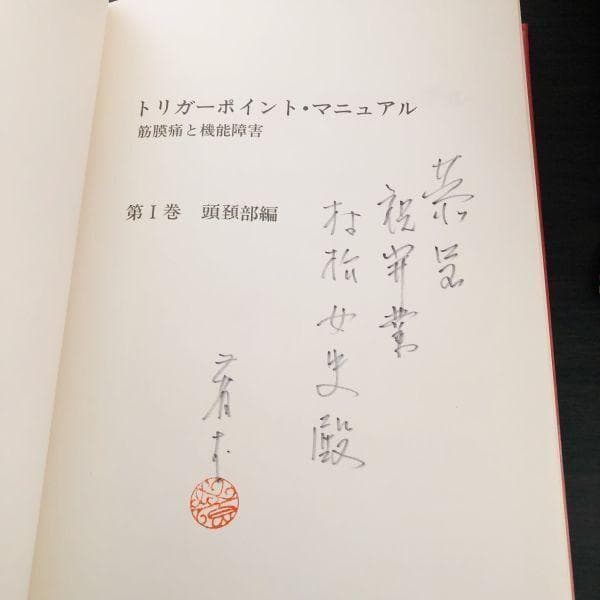 トリガーポイント・マニュアル
筋膜痛と機能障害
第Ⅰ巻 頭頚部編
恭呈
祝開業
村松女史殿